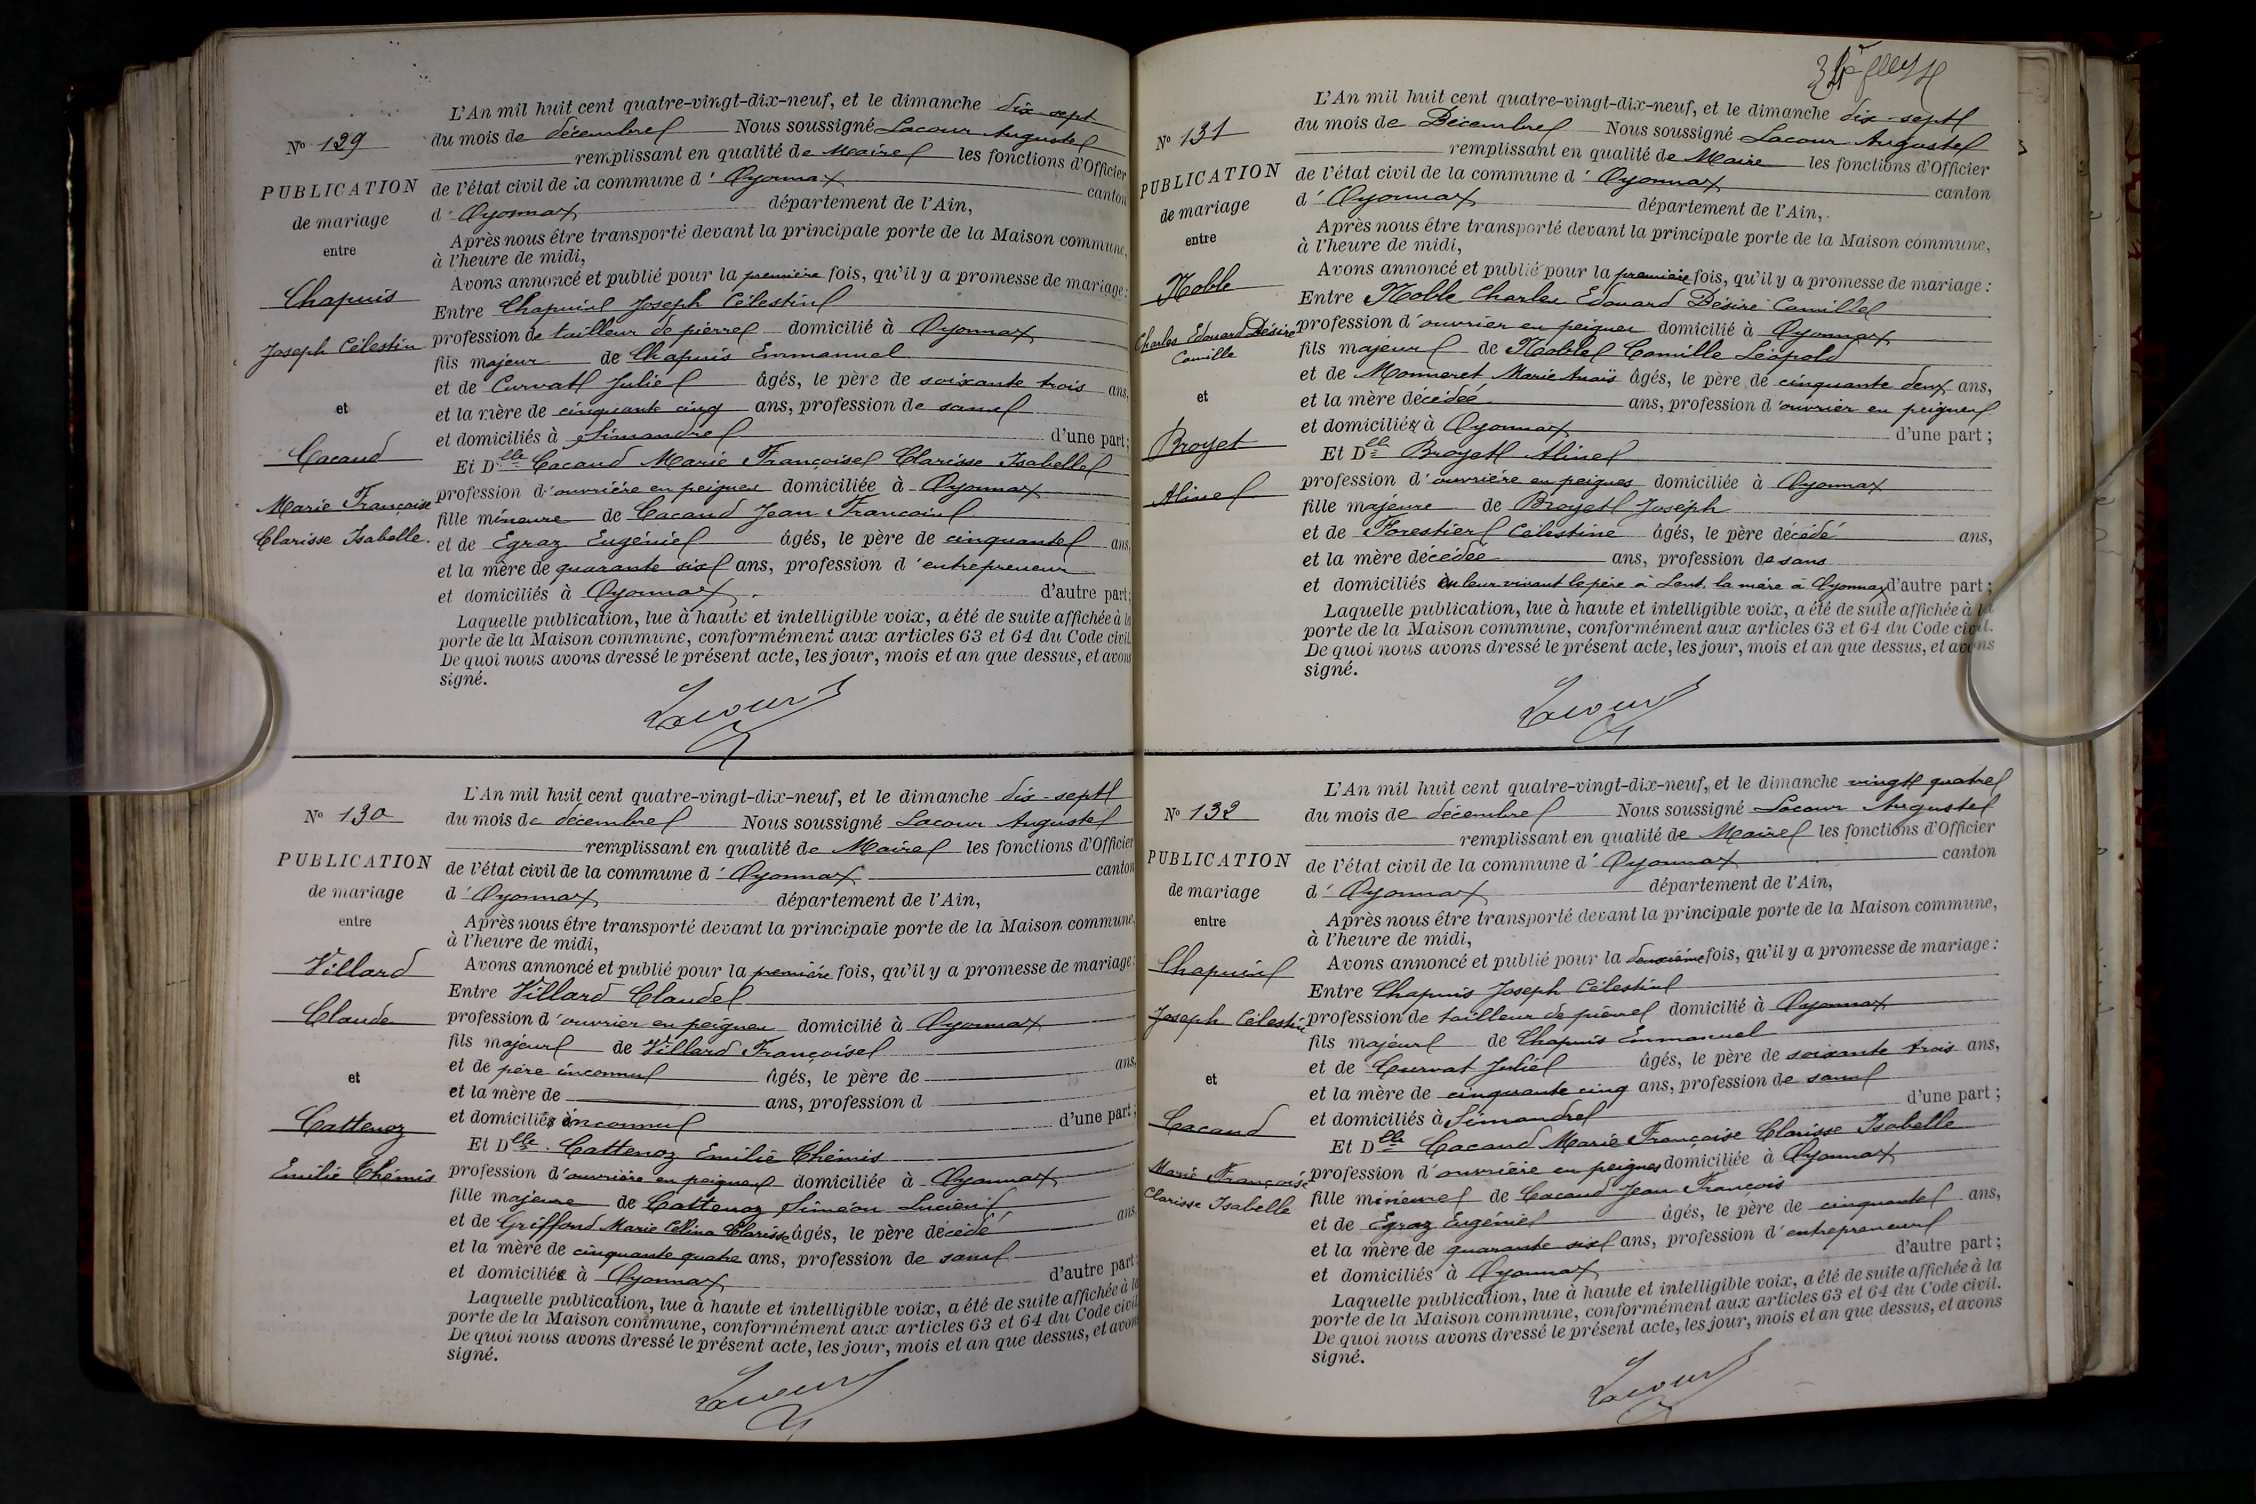 L'An mil huit cent quatre-vingt-dix-neuf, et le dimanche dix-sept
No 129
du mois de décembre Nous soussigné Lacour Auguste
remplissant en qualité de Maire les fonctions d'Officier
PUBLICATION
de l'état civil de la commune d' Oyonnax canton
de mariage
d' Oyonnax département de l'Ain,
entre
Après nous être transporté devant la principale porte de la Maison commune,
à l'heure de midi,
Avons annoncé et publié pour la première fois, qu'il y a promesse de mariage :
Chapuis
Entre Chapuis Joseph Célestin
Joseph Célestin
profession de tailleur de pierre domicilié à Oyonnax
fils majeur de Chapuis Emmanuel
et de Curvat Julie âgés, le père de soixante trois ans,
et
et la mère de cinquante cinq ans, profession de sans
et domiciliés à Simandre d'une part ;
Cacaud
Et Dlle Cacaud Marie Françoise Clarisse Isabelle
profession d'ouvrière en peignes domiciliée à Oyonnax
Marie Françoise
fille mineure de Cacaud Jean François
Clarisse Isabelle.
et de Egraz Eugénie âgés, le père de cinquante ans,
et la mère de quarante six ans, profession d'entrepreneur
et domiciliés à Oyonnax d'autre part ;
Laquelle publication, lue à haute et intelligible voix, a été de suite affichée à la
porte de la Maison commune, conformément aux articles 63 et 64 du Code civil.
De quoi nous avons dressé le présent acte, les jour, mois et an que dessus, et avons
signé.
Lacour
L'An mil huit cent quatre-vingt-dix-neuf, et le dimanche dix-sept
No 130
du mois de décembre Nous soussigné Lacour Auguste
remplissant en qualité de Maire les fonctions d'Officier
PUBLICATION
de l'état civil de la commune d' Oyonnax canton
de mariage
d' Oyonnax département de l'Ain,
entre
Après nous être transporté devant la principale porte de la Maison commune,
à l'heure de midi,
Villard
Avons annoncé et publié pour la première fois, qu'il y a promesse de mariage :
Entre Villard Claude
Claude
profession d'ouvrier en peignes domicilié à Oyonnax
fils majeur de Villard Françoise
et de père inconnu âgés, le père de ans,
et
et la mère de ans, profession d
et domiciliés à inconnu d'une part ;
Cattenoz
Et Dlle Cattenoz Emilie Thémis
Emilie Thémis
profession d'ouvrière en peignes domiciliée à Oyonnax
fille majeure de Cattenoz Siméon Lucien
et de Griffond Marie Célina Clarisse âgés, le père décédé ans
et la mère de cinquante quatre ans, profession de sans
et domiciliée à Oyonnax d'autre part ;
Laquelle publication, lue à haute et intelligible voix, a été de suite affichée à la
porte de la Maison commune, conformément aux articles 63 et 64 du Code civil
De quoi nous avons dressé le présent acte, les jour, mois et an que dessus, et avons
signé.
Lacour
L'An mil huit cent quatre-vingt-dix-neuf, et le dimanche dix-sept
No 131
du mois de Décembre Nous soussigné Lacour Auguste
remplissant en qualité de Maire les fonctions d'Officier
PUBLICATION
de l'état civil de la commune d' Oyonnax canton
de mariage
d' Oyonnax département de l'Ain,
entre
Après nous être transporté devant la principale porte de la Maison commune,
à l'heure de midi,
Avons annoncé et publié pour la première fois, qu'il y a promesse de mariage :
Noble
Entre Noble Charles Edouard Désiré Camille
Charles Edouard Désiré
Camille
profession d'ouvrier en peignes domicilié à Oyonnax
fils majeur de Noble Camille Léopold
et de Monneret Marie Anaïs âgés, le père de cinquante deux ans,
et
et la mère décédée ans, profession d'ouvrier en peignes
et domiciliés à Oyonnax d'une part ;
Broyet
Et Dlle Broyet Aline
profession d'ouvrière en peignes domiciliée à Oyonnax
Aline
fille majeure de Broyet Joseph
et de Forestier Célestine âgés, le père décédé ans,
et la mère décédée ans, profession de sans
et domiciliés de leur vivant le père à Lent, la mère à Oyonnax d'autre part ;
Laquelle publication, lue à haute et intelligible voix, a été de suite affichée à la
porte de la Maison commune, conformément aux articles 63 et 64 du Code civil.
De quoi nous avons dressé le présent acte, les jour, mois et an que dessus, et avons
signé.
Lacour
L'An mil huit cent quatre-vingt-dix-neuf, et le dimanche vingt quatre
No 132
du mois de décembre Nous soussigné Lacour Auguste
remplissant en qualité de Maire les fonctions d'Officier
PUBLICATION
de l'état civil de la commune d' Oyonnax canton
de mariage
d' Oyonnax département de l'Ain,
entre
Après nous être transporté devant la principale porte de la Maison commune,
à l'heure de midi,
Chapuis
Avons annoncé et publié pour la deuxième fois, qu'il y a promesse de mariage :
Entre Chapuis Joseph Célestin
Joseph Célestin
profession de tailleur de pierre domicilié à Oyonnax
fils majeur de Chapuis Emmanuel
et de Curvat Julie âgés, le père de soixante trois ans,
et
et la mère de cinquante cinq ans, profession de sans
et domiciliés à Simandre d'une part ;
Cacaud
Et Dlle Cacaud Marie Françoise Clarisse Isabelle
Marie Françoise
profession d'ouvrière en peignes domiciliée à Oyonnax
Clarisse Isabelle
fille mineure de Cacaud Jean François
et de Egraz Eugénie âgés, le père de cinquante ans,
et la mère de quarante six ans, profession d'entrepreneur
et domiciliés à Oyonnax d'autre part ;
Laquelle publication, lue à haute et intelligible voix, a été de suite affichée à la
porte de la Maison commune, conformément aux articles 63 et 64 du Code civil.
De quoi nous avons dressé le présent acte, les jour, mois et an que dessus, et avons
signé.
Lacour